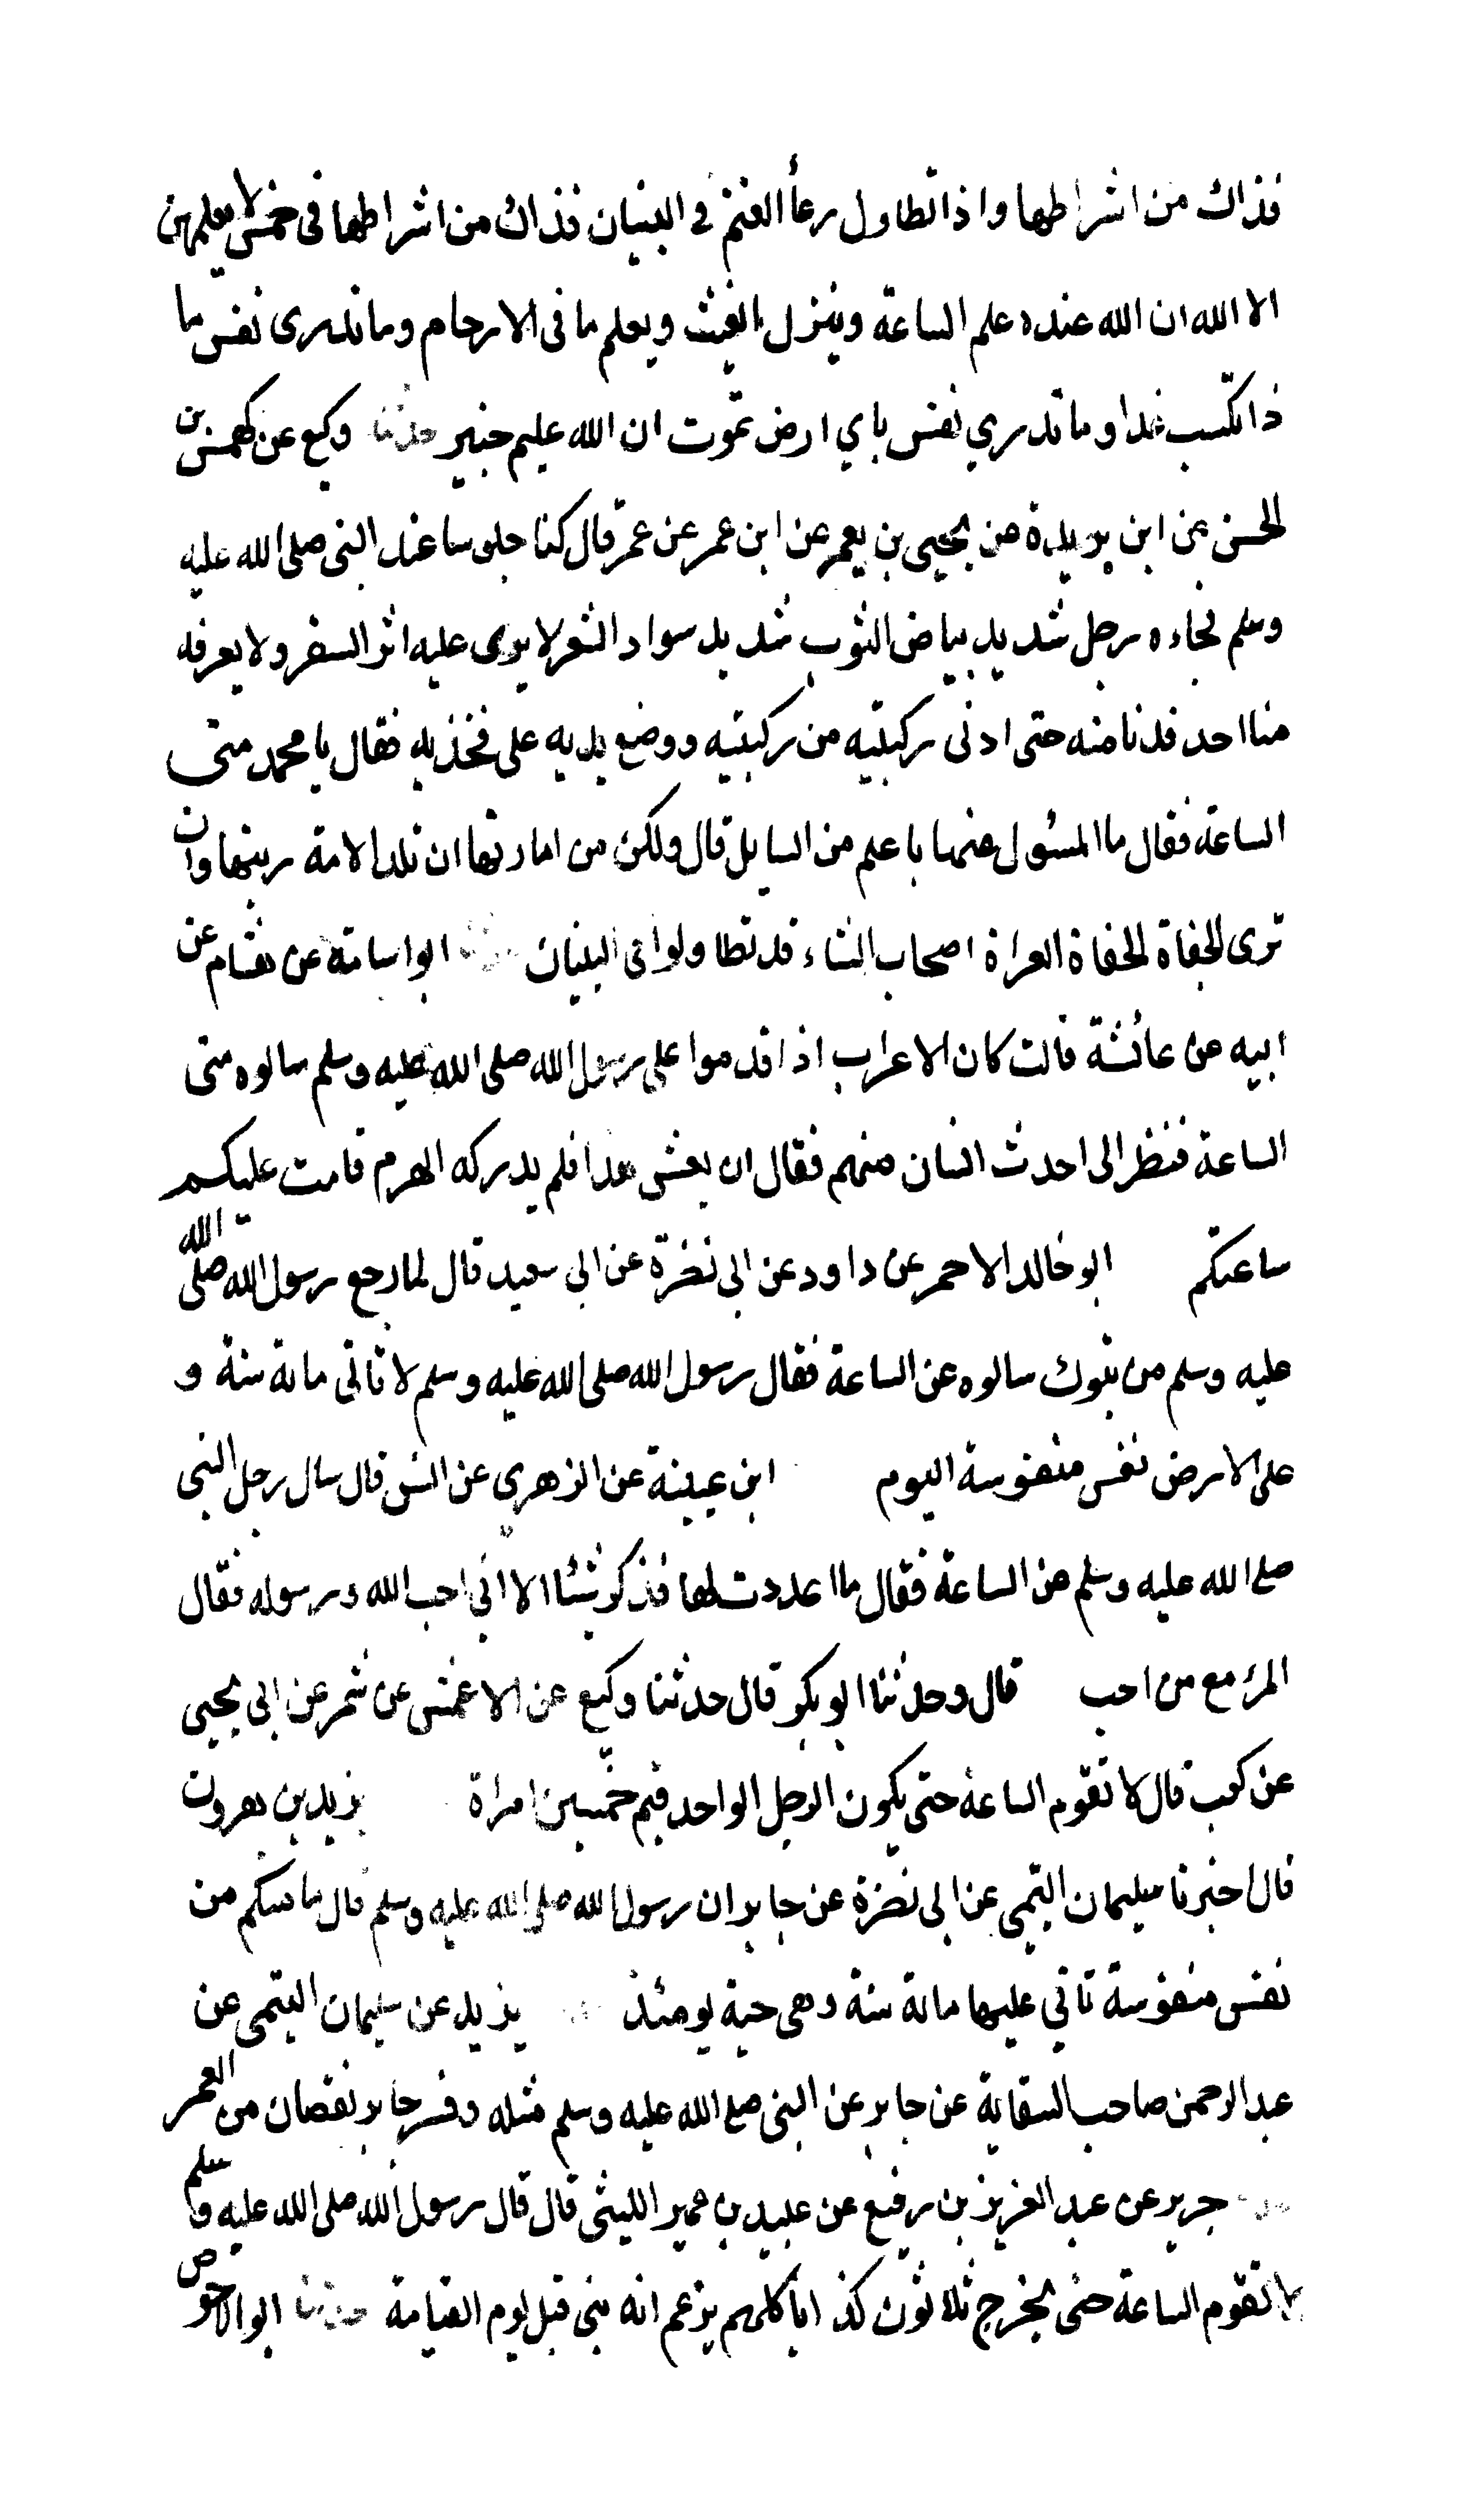 فذاك من اشراطها واذا تطاول رعأ الغنم في البنيان فذاك من اشراطها في خمس لا يعلمهن
الا الله ان الله عنده علم الساعة وينزل الغيث ويعلم ما فى الارحام وما تدرى نفس ما
ذا تكسب غدا وما تدري نفس باي ارض تموت ان الله عليم خبير حدثنا وكيع عن كهمس بن
الحسن عن ابن بريدة عن يحيى بن يعمر عن ابن عمر عن عمر قال كنا جلوسا عند النبى صلى الله عليه
وسلم فجاءه رجل شديد بياض الثوب شديد سواد الشعر لا يرى عليه اثر السفر ولا يعرفه
منا احد فدنا منه حتى ادنى ركبتيه من ركبتيه ووضع يديه على فخذيه فقال يا محمد متى
الساعة فقال ما المسئول عنها باعلم من السايل قال ولكن من امارتها ان تلد الامة ربتها وان
ترى الجفاة الحفاة العراة اصحاب الشاء قد تطاولوا فى البنيان حدثنا ابو اسامة عن هشام عن
ابيه عن عائشة قالت كان الاعراب اذا قدموا على رسول الله صلى الله عليه وسلم سالوه متى
الساعة فنظر الى احدث انسان منهم فقال ان يعش هذا فلم يدركه الهرم قامت عليكم
ساعتكم ابو خالد الاحمر عن داود عن ابى نضرة عن ابى سعيد قال لما رجع رسول الله صلى الله
عليه وسلم من تبوك سالوه عن الساعة فقال رسول الله صلى الله عليه وسلم لا تاتى مائة سنة و
على الارض نفس منفوسة اليوم ابن عيينة عن الزهري عن انس قال سال رجل النبى
صلى الله عليه وسلم عن الساعة فقال ما اعددت لها فذكر شيئا الا انى احب الله ورسوله فقال
المرء مع من احب قال وحدثنا ابو بكر قال حدثنا وكيع عن الاعمش عن شمر عن ابى يحيى
عن كعب قال لا تقوم الساعة حتى يكون الرجل الواحد قيم خمسين امراة يزيد بن هرون
قال اخبرنا سليمان التيمى عن ابى نضرة عن جابر ان رسول الله صلى الله عليه وسلم قال ما منكم من
نفس منفوسة تاتي عليها مائة سنة وهى حية يومئذ يزيد عن سليمان التيمى عن
عبد الرحمن صاحب السقاية عن جابر عن النبى صلى الله عليه وسلم مثله وفسر جابر نقصان من العمر
جرير عن عبد العزيز بن رفيع عن عبيد بن عمير الليثى قال قال رسول الله صلى الله عليه وسلم
لا تقوم الساعة حتى يخرج ثلاثون كذابا كلهم يزعم انه نبى قبل يوم القيامة حدثنا ابو الاحوص